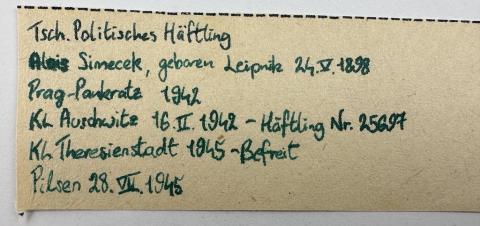 Tsch. Politisches Häftling
Alois Simecek, geboren Leipnik 24.V.1898
Prag-Pankratz 1942
KL Auschwitz 16.II.1942 - Häftling Nr. 25697
KL Theresienstadt 1945 - Befreit
Pilsen 28.VII.1945